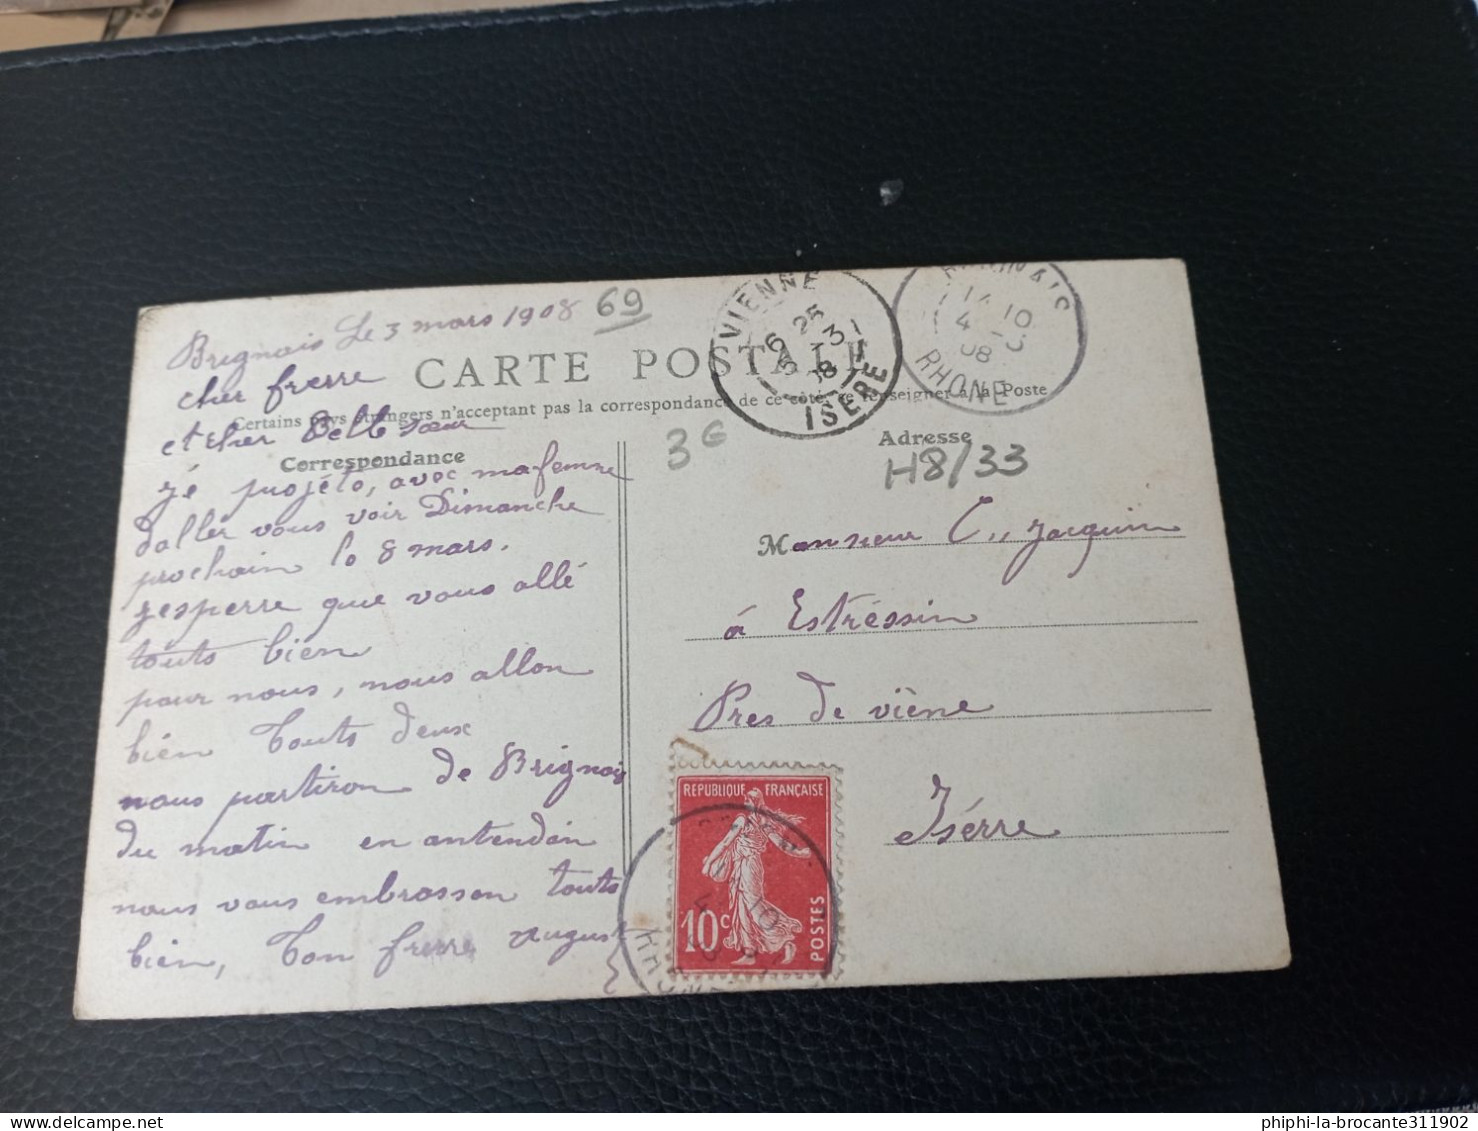 Brignais Le 3 mars 1908 69
CARTE POSTALE
cher frerre
Certains pays étrangers n'acceptent pas la correspondance de ce côté, se renseigner à la Poste
et cher Belle sœur
Correspondance
jé projeto, avec ma femme
daller vous voir Dimanche
prochain lo 8 mars.
jesperre que vous allé
touts bien
pour nous, nous allon
bién touts deux
nous partiron de Brignais
du matin en antendan
nous vous embrasson touts
bién, ton frerre august
VIENNE
6 25
5 -3
08
ISERE
BRIGNAIS
10
4 -3
08
RHONE
3 G
Adresse
H8/33
Monsieur C,, Jacquin
á Estréssin
Pres de viène
Isérre
REPUBLIQUE FRANÇAISE
10c
POSTES
RHONE
phiphi-la-brocante311902